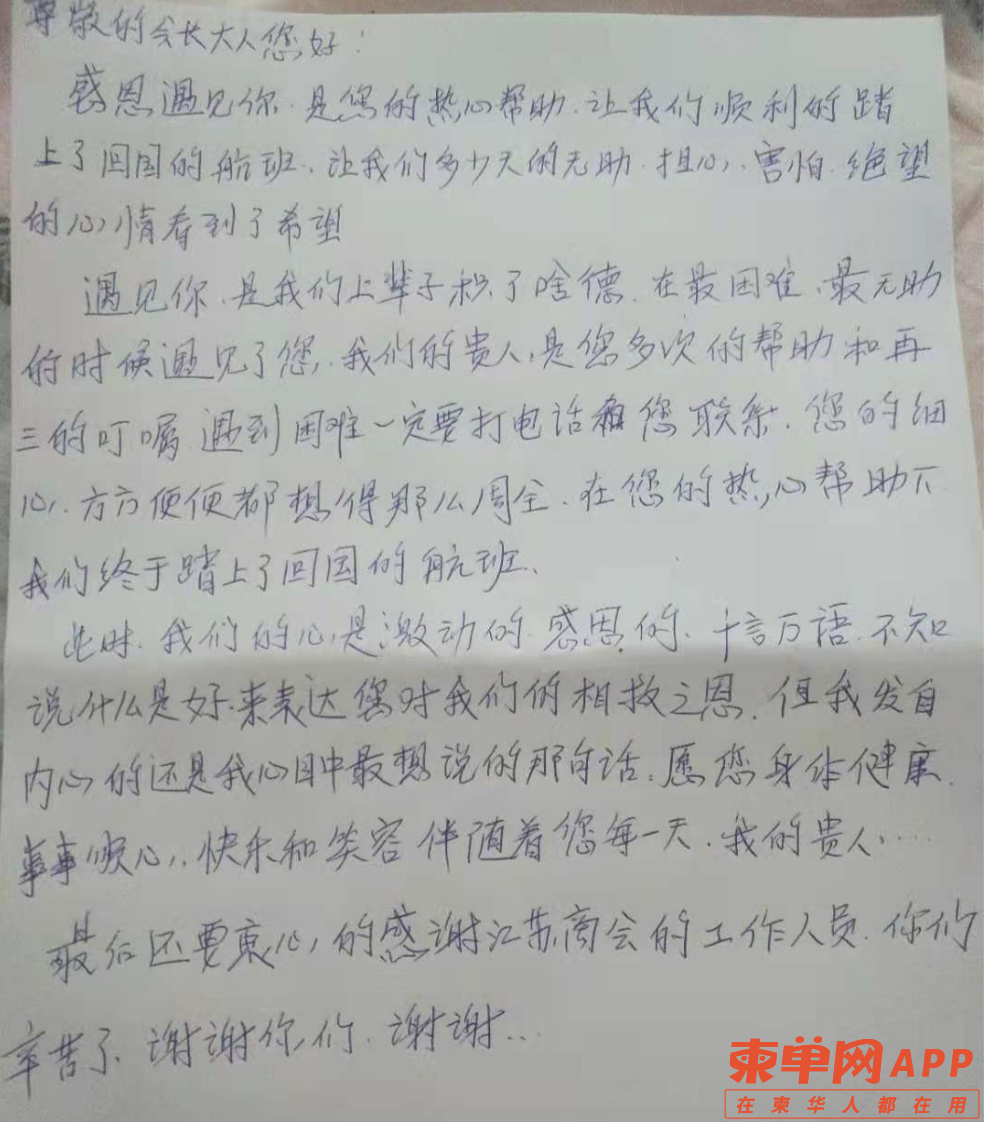 尊敬的会长大人您好：
感恩遇见你.是您的热心帮助.让我们顺利的踏
上了回国的航班.让我们多少天的无助.担心.害怕.绝望
的心情看到了希望
遇见你.是我们上辈子积了啥德.在最困难、最无助
的时候遇见了您.我们的贵人.是您多次的帮助和再
三的叮嘱.遇到困难一定要打电话和您联系.您的细
心.方方便便都想得那么周全.在您的热心帮助下
我们终于踏上了回国的航班.
此时.我们的心是激动的.感恩的.千言万语.不知
说什么是好.来表达您对我们的相救之恩.但我发自
内心的还是我心目中最想说的那句话:愿您身体健康.
事事顺心.快乐和笑容伴随着您每一天.我的贵人....
最后还要衷心的感谢江苏商会的工作人员.你们
辛苦了.谢谢你们.谢谢...
柬单网APP
在柬华人都在用